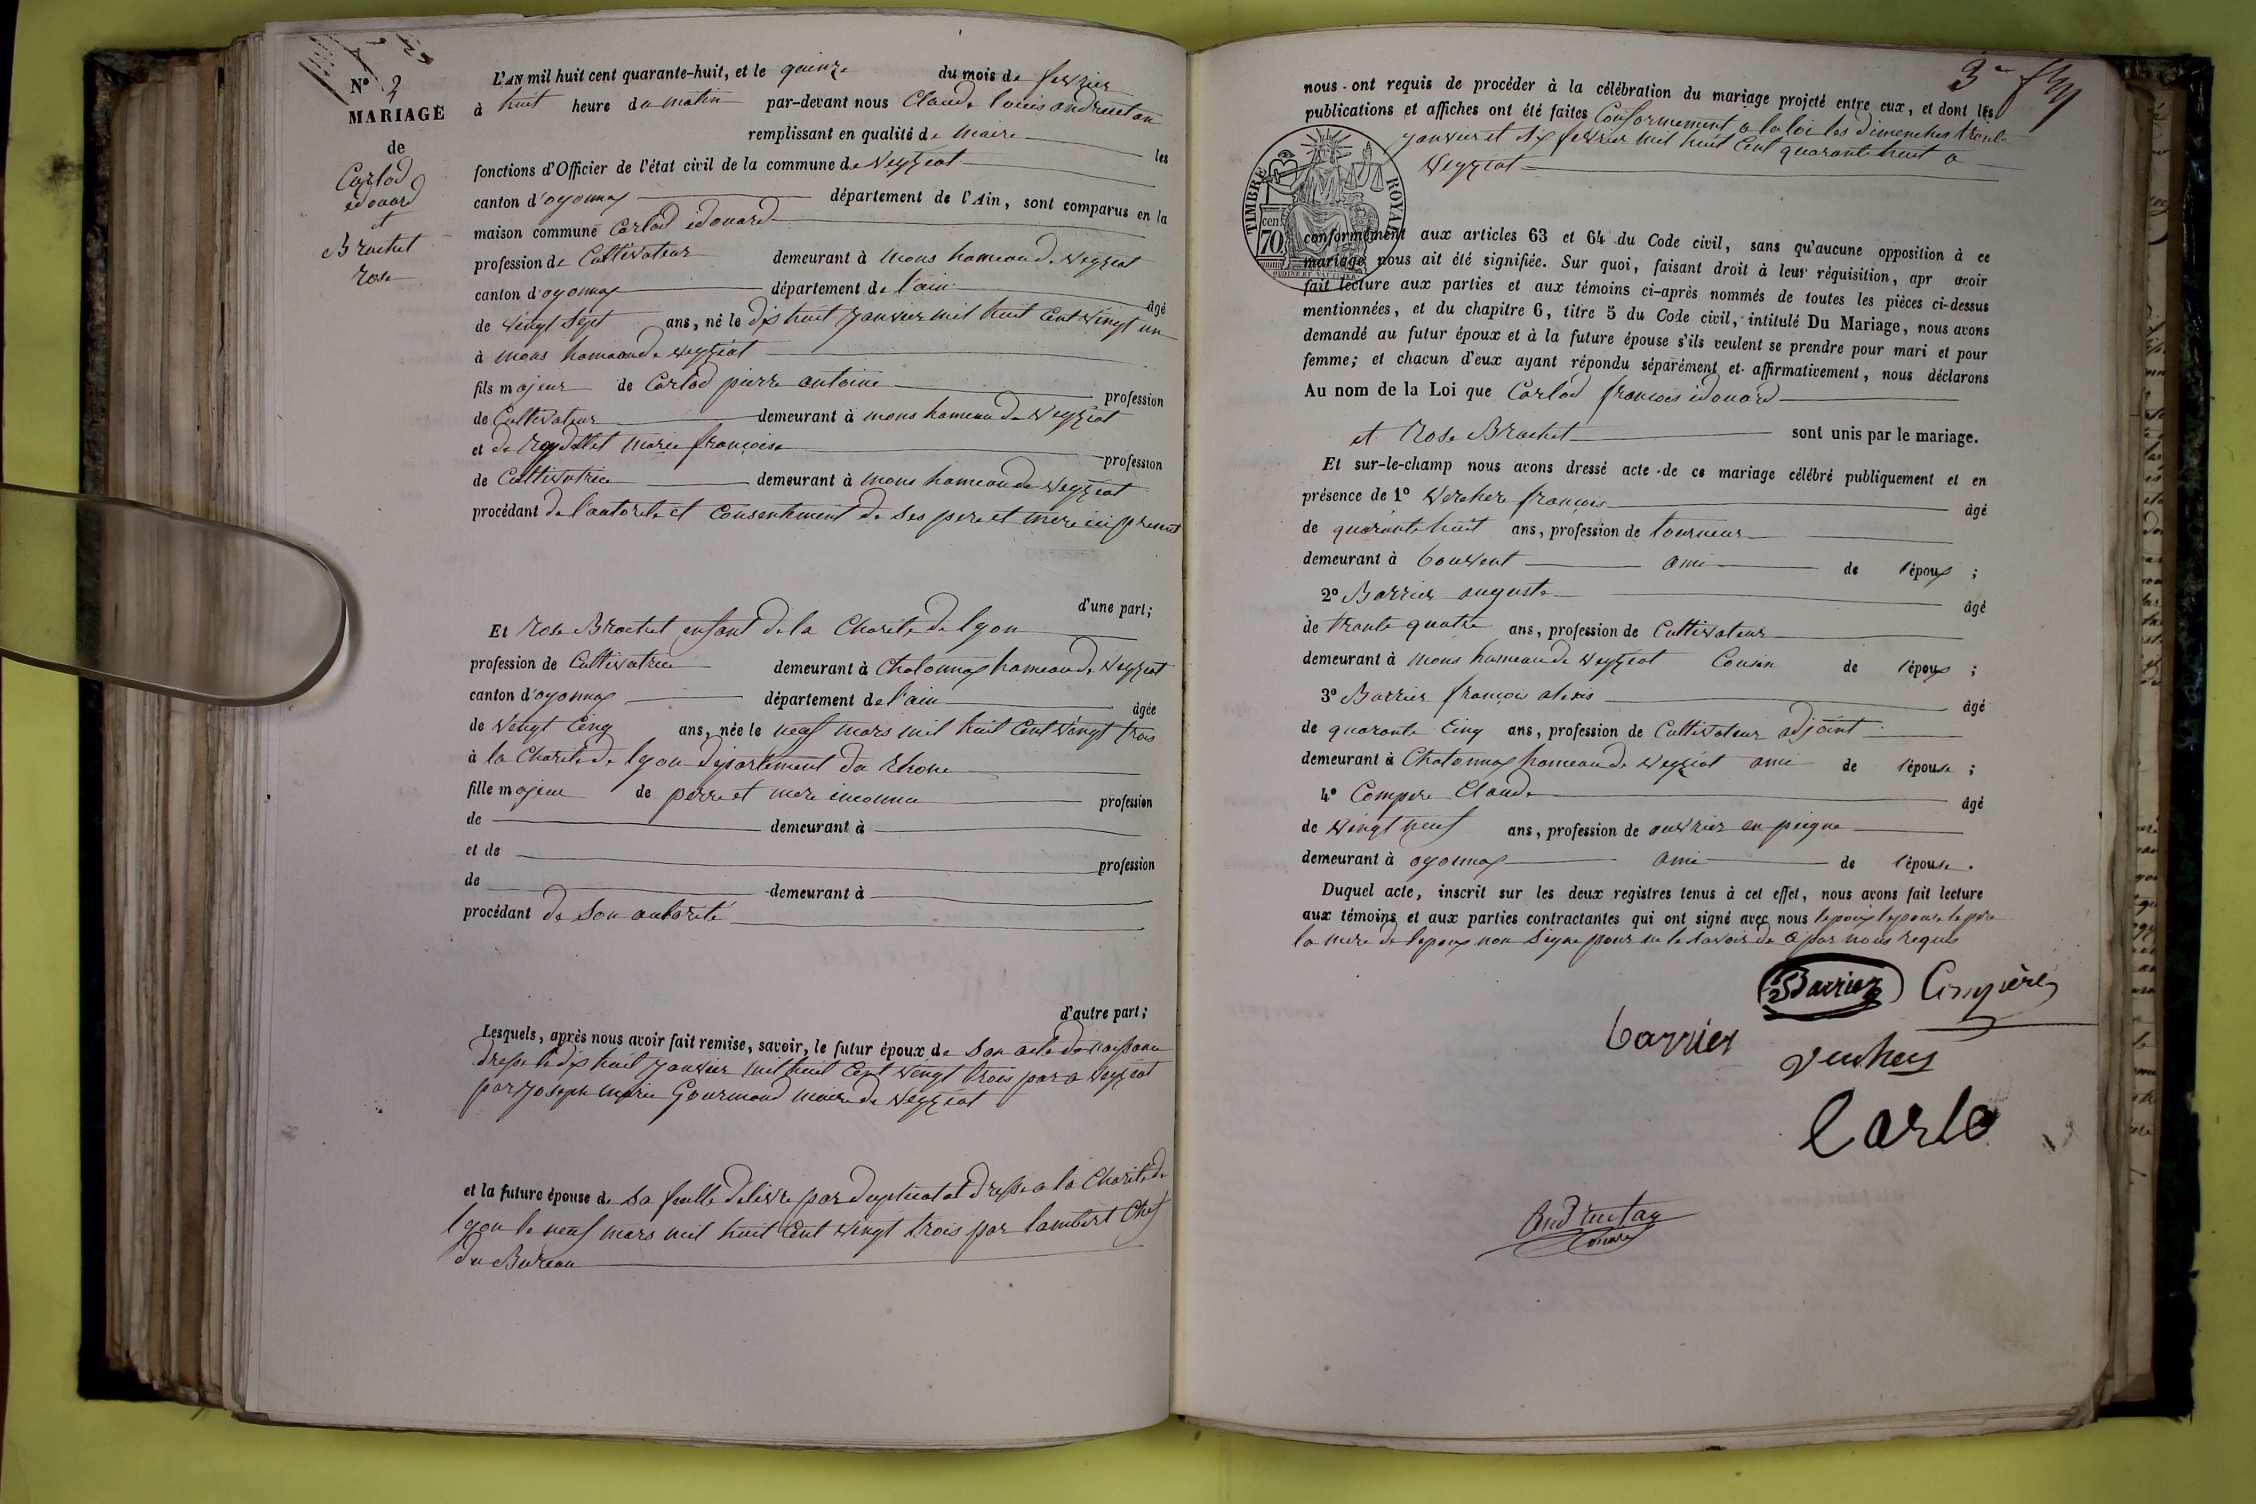 N° 2
MARIAGE
de
Carlod
édouard
et
Brachet
rose
L'AN mil huit cent quarante-huit, et le quinze du mois de fevrier
à huit heure du matin par-devant nous Claude louis andruetan
remplissant en qualité de maire les
fonctions d'Officier de l'état civil de la commune de Veyziat
canton d'oyonnax département de l'Ain, sont comparus en la
maison commune Carlod édouard
profession de Cultivateur demeurant à mons hameau de Veyziat
canton d'oyonnax département de l'ain âgé
de vingt sept ans, né le dix huit janvier mil huit cent vingt un
à mons hameau de veyziat
fils majeur de Carlod pierre antoine profession
de Cultivateur demeurant à mons hameau de Veyziat
et de reydellet marie françoise profession
de Cultivatrice demeurant à mons hameau de Veyziat
procédant de l'autorite et Consentement de ses pere et mere ici present
d'une part;
Et rose Brachet enfant de la Charite de lyon
profession de Cultivatrice demeurant à Chatonnax hameau de Veyziat
canton d'oyonnax département de l'ain âgée
de vengt Cinq ans, née le neuf mars mil huit Cent vingt trois
à la Charite de lyon département du Rhone
fille majeure de perre et mere inconnu profession
de demeurant à
et de profession
de demeurant à
procédant de son autorité
d'autre part;
Lesquels, après nous avoir fait remise, savoir, le futur époux de son acte de naissance
dresse le dix huit janvier mil huit Cent vingt trois par a veyziat
par joseph marie Gourmand maire de Veyziat
et la future épouse de sa feulle delivre par duplicatat dresse a la Charite de
lyon le neuf mars mil huit Cent vingt trois par lambert Chef
du Bureau
3e
nous ont requis de procéder à la célébration du mariage projeté entre eux, et dont les
publications et affiches ont été faites Conformement a la loi les dimenches trente
janvier et six fevrier mil huit Cent quarante huit a
Veyziat
TIMBRE ROYAL
cen. 70
conformément aux articles 63 et 64 du Code civil, sans qu'aucune opposition à ce
mariage nous ait été signifiée. Sur quoi, faisant droit à leur réquisition, apr avoir
fait lecture aux parties et aux témoins ci-après nommés de toutes les pièces ci-dessus
mentionnées, et du chapitre 6, titre 5 du Code civil, intitulé Du Mariage, nous avons
demandé au futur époux et à la future épouse s'ils veulent se prendre pour mari et pour
femme; et chacun d'eux ayant répondu séparément et affirmativement, nous déclarons
Au nom de la Loi que Carlod françois édouard
et Rose Brachet sont unis par le mariage.
Et sur-le-champ nous avons dressé acte de ce mariage célébré publiquement et en
présence de 1° Verchere françois âgé
de quarante huit ans, profession de tourneur
demeurant à bouvent ami de l'époux ;
2° Barrier auguste âgé
de trante quatre ans, profession de Cultivateur
demeurant à mons hameau de Veyziat Cousin de l'époux ;
3° Barrier françois alexis âgé
de quarante Cinq ans, profession de Cultivateur adjoint
demeurant à Chatonnax hameau de Veyziat ami de l'épouse ;
4° Compere Claude âgé
de vingt neuf ans, profession de ouvrier en peigne
demeurant à oyonnax ami de l'épouse.
Duquel acte, inscrit sur les deux registres tenus à cet effet, nous avons fait lecture
aux témoins et aux parties contractantes qui ont signé avec nous lepoux lepouse le pere
la mere de lepoux non signe pour ne le savoir de ce par nous requis
Barrier
barrier
Carlo